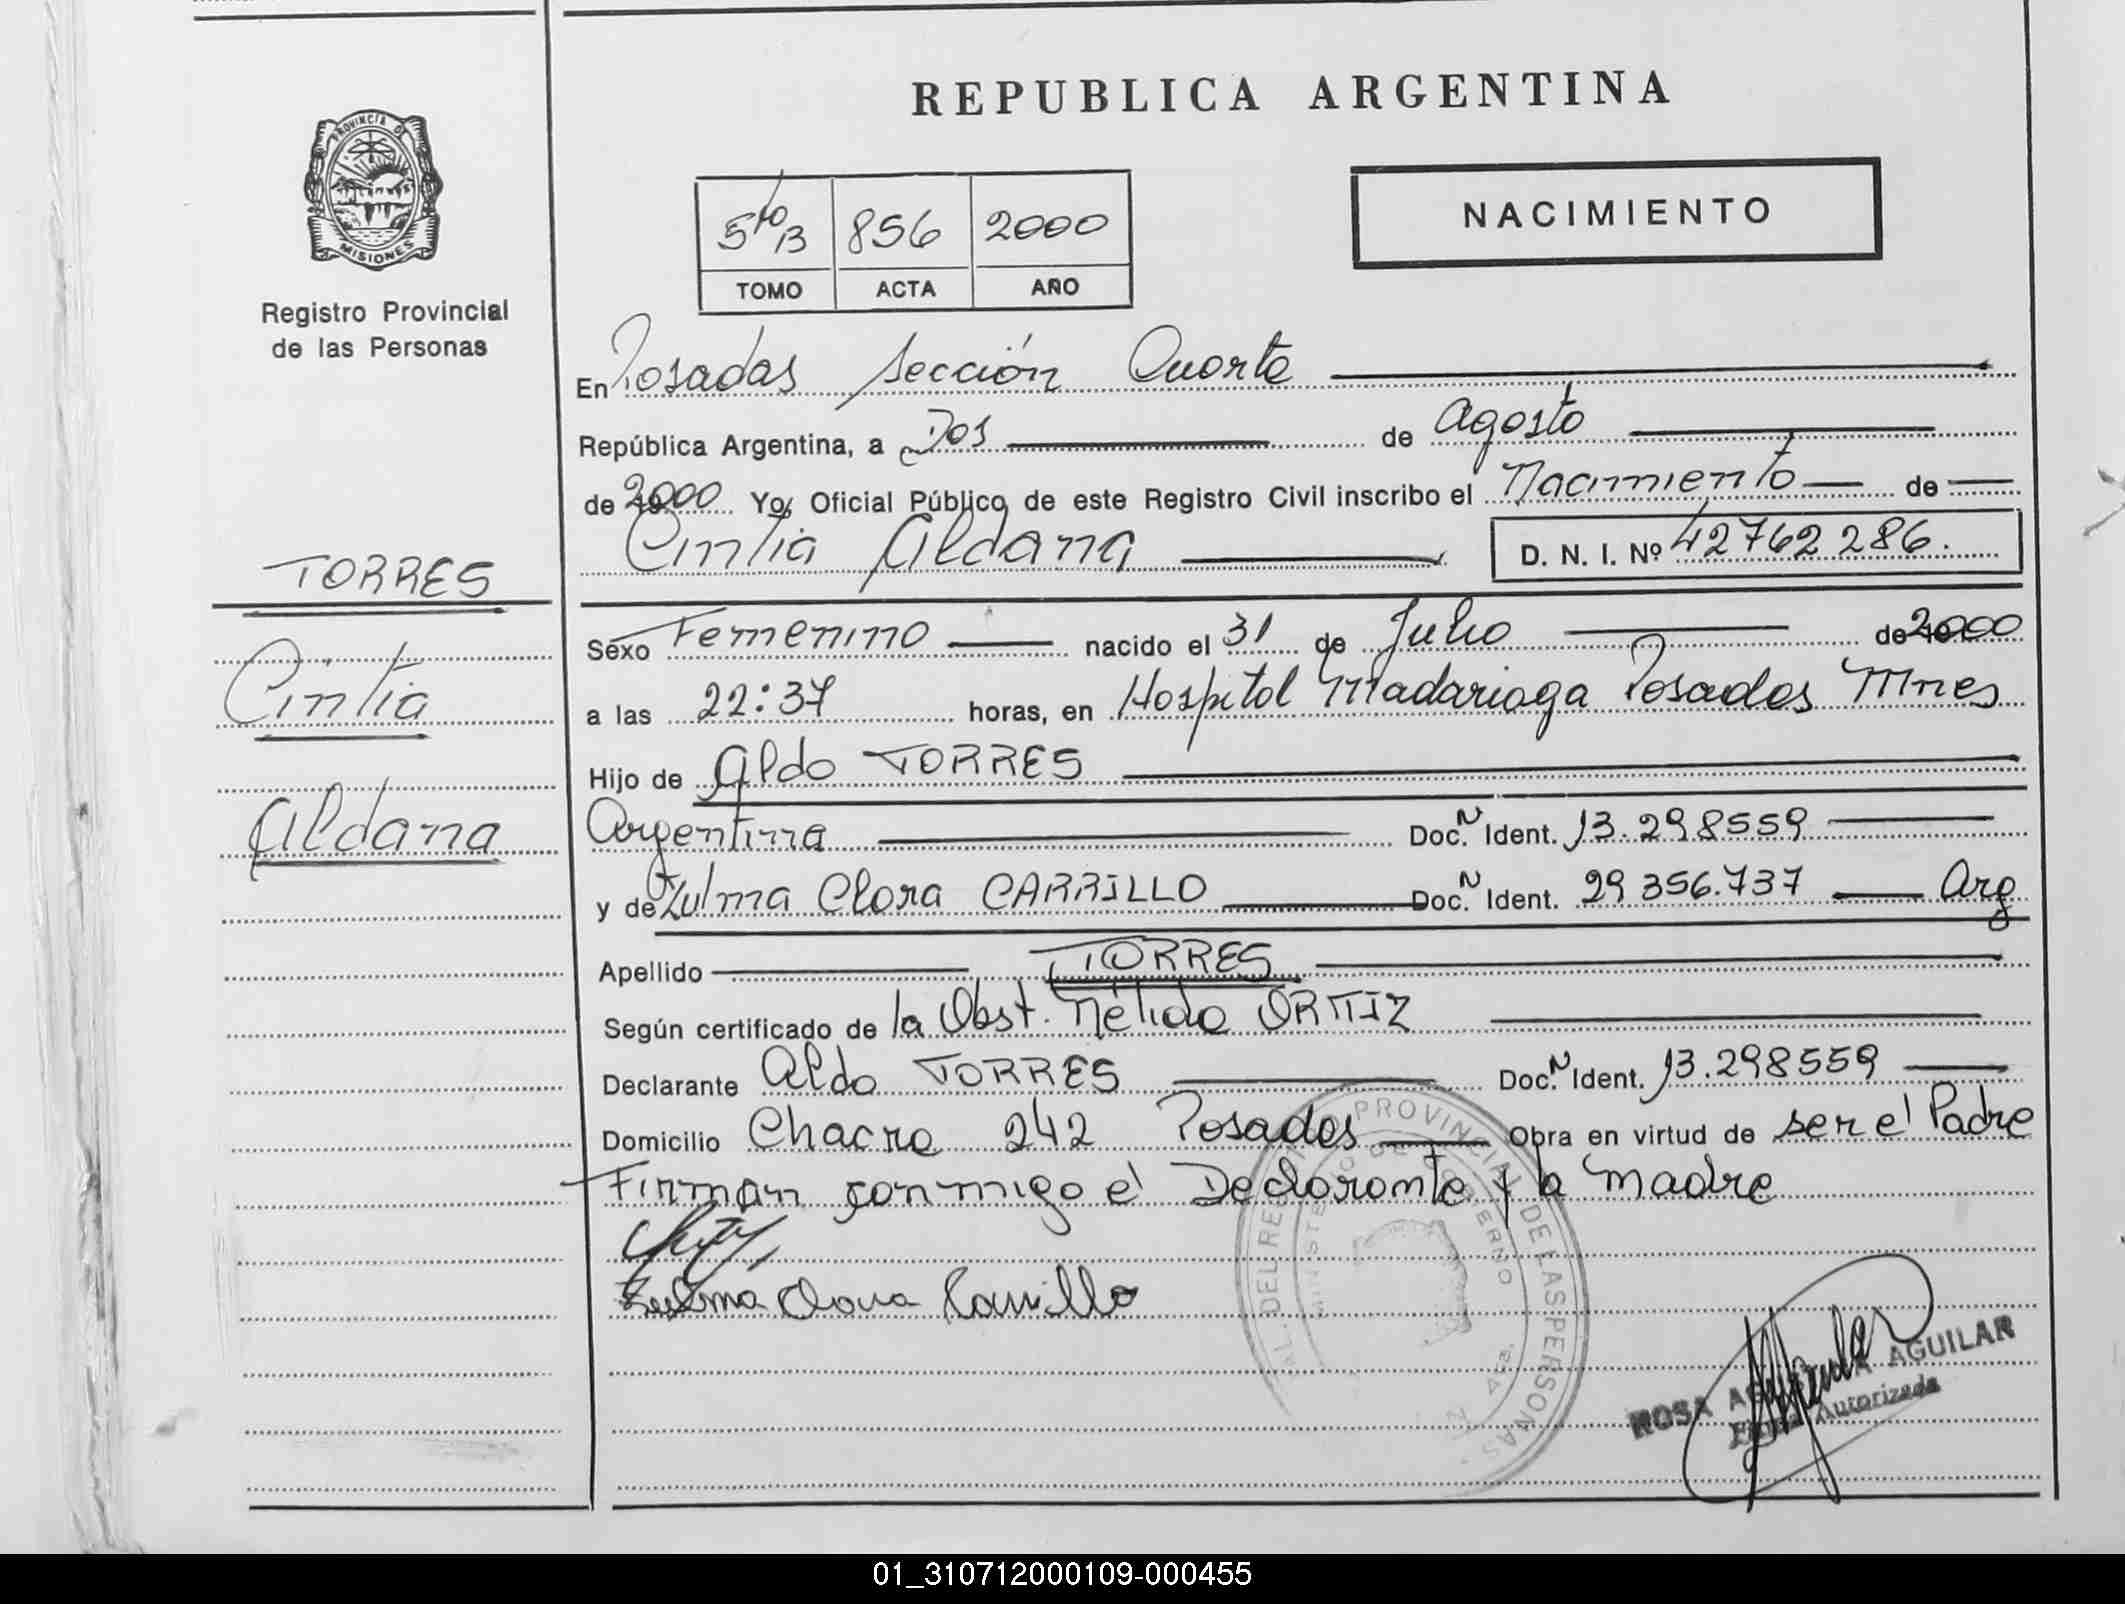 REPUBLICA ARGENTINA
PROVINCIA DE MISIONES
Registro Provincial
de las Personas
5to B 856 2000
TOMO ACTA AÑO
NACIMIENTO
En Posadas Sección Cuarta
República Argentina, a Dos de Agosto
de 2000 Yo, Oficial Público de este Registro Civil inscribo el Nacimiento de
Cintia Aldana D. N. I. Nº 42762286.
TORRES
Cintia
Aldana
Sexo Femenino nacido el 31 de Julio de 2000
a las 22:37 horas, en Hospital Madariaga Posadas Mnes
Hijo de Aldo TORRES
Argentina Doc. N Ident. 13.298559
y de Zulma Clora CARRILLO Doc. N Ident. 29356.737 Arg
Apellido TORRES
Según certificado de la Obst. Nélida ORTIZ
Declarante Aldo TORRES Doc. N Ident. 13.298559
Domicilio Chacra 242 Posadas Obra en virtud de ser el Padre
Firman conmigo el Declarante y la madre
Zulma Clora Carrillo
DEL REGISTRO PROVINCIAL DE LAS PERSONAS
MINISTERIO DE GOBIERNO
ROSA AGUILAR
Firma Autorizada
01_310712000109-000455